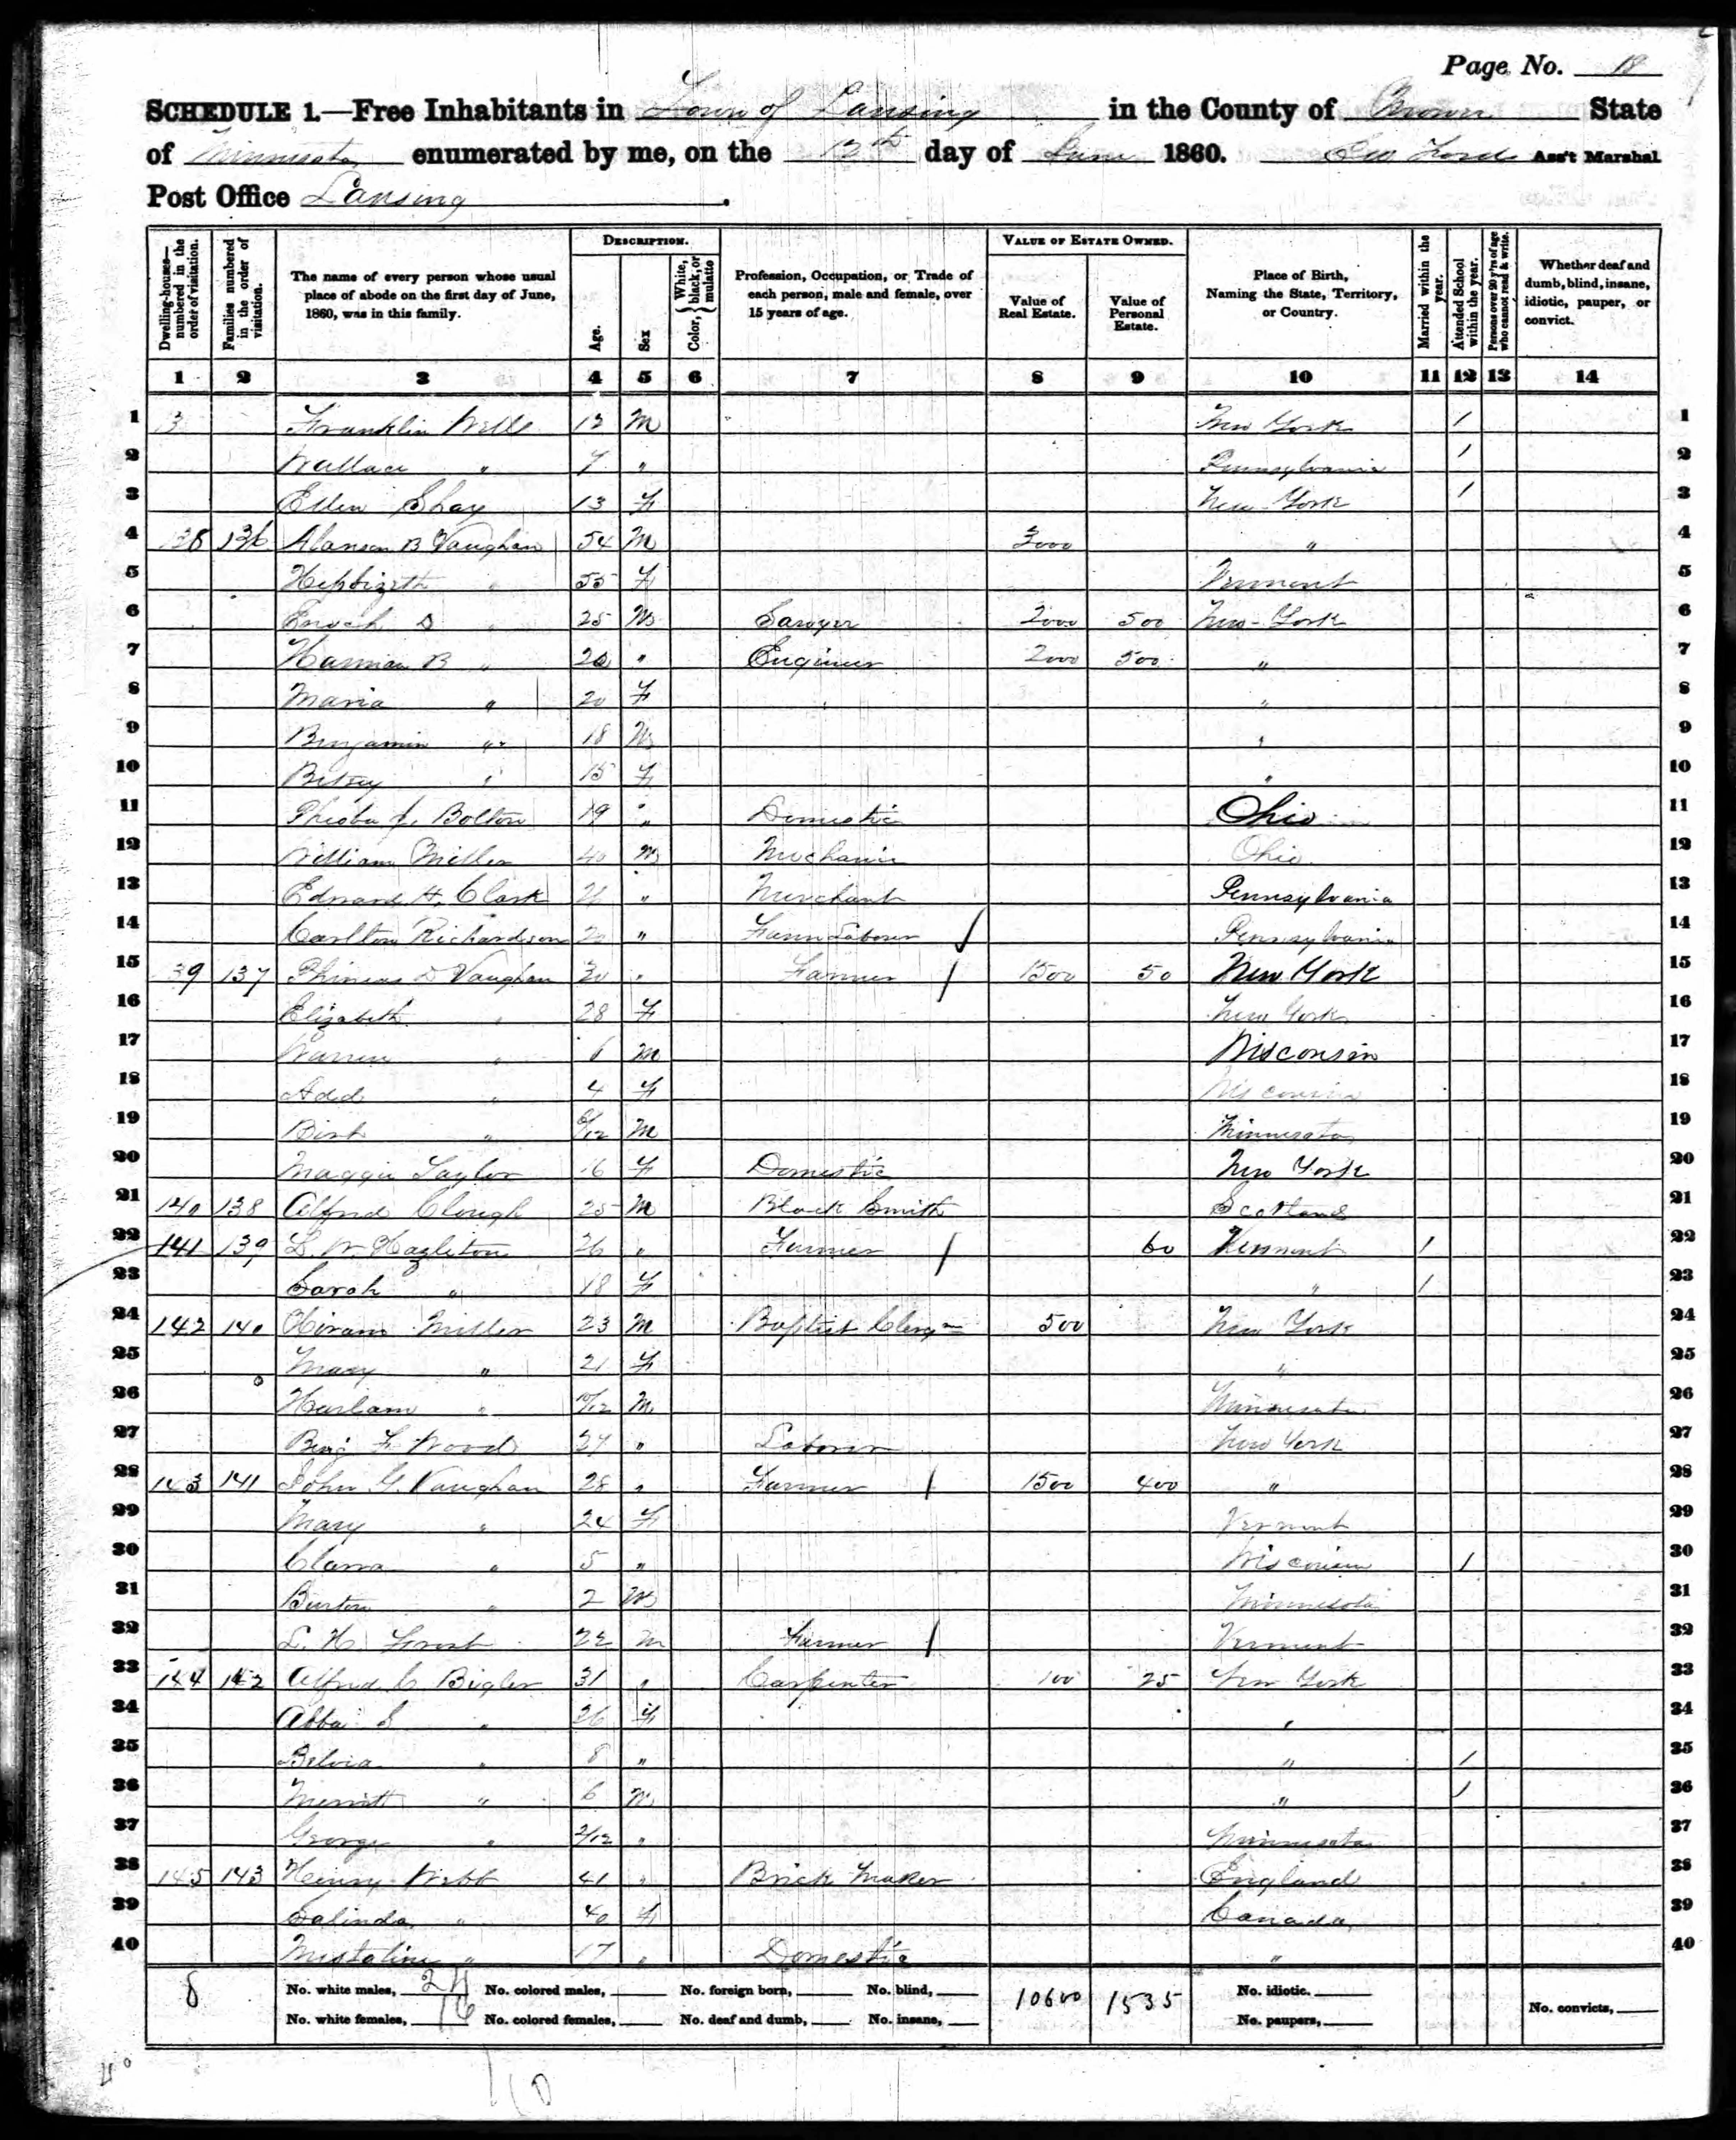 Page No. 18
SCHEDULE 1.—Free Inhabitants in Town of Lansing in the County of Mower State
of Minnesota enumerated by me, on the 12th day of June 1860. Geo Ford Ass't Marshal
Post Office Lansing.
Dwelling-houses—numbered in the order of visitation.
Families numbered in the order of visitation.
The name of every person whose usual place of abode on the first day of June, 1860, was in this family.
DESCRIPTION.
Age.
Sex
Color, {White, black, or mulatto
Profession, Occupation, or Trade of each person, male and female, over 15 years of age.
VALUE OF ESTATE OWNED.
Value of Real Estate.
Value of Personal Estate.
Place of Birth, Naming the State, Territory, or Country.
Married within the year.
Attended School within the year.
Persons over 20 y'rs of age who cannot read & write.
Whether deaf and dumb, blind, insane, idiotic, pauper, or convict.
1 2 3 4 5 6 7 8 9 10 11 12 13 14
1 3 Franklin Wells 12 M New York / 1
2 Wallace " 7 " Pennsylvania / 2
3 Ellen Shay 13 F New York / 3
4 38 136 Alanson B Vaughan 54 M 3000 " 4
5 Hepbizeth " 55 F Vermont 5
6 Enoch D " 25 M Sawyer 2000 500 New-York 6
7 Harman B " Engineer 2000 500 " 7
8 Maria " 20 F " 8
9 Benjamin " 18 M " 9
10 Betsey " 15 F " 10
11 Pheobe J. Bolton 19 " Domestic Ohio 11
12 William Miller 40 M Mechanic Ohio 12
13 Edward H. Clark 21 " Merchant Pennsylvania 13
14 Carlton Richardson 20 " Farm Laborer / Pennsylvania 14
15 39 137 Phineas D Vaughan 30 " Farmer / 1500 50 New York 15
16 Elizabeth " 28 F New York 16
17 Warren " 6 M Wisconsin 17
18 Add " 4 F Wisconsin 18
19 Birt " 6/12 M Minnesota 19
20 Maggie Taylor 16 F Domestic New York 20
21 140 138 Alfred Clough 25 M Black Smith Scotland 21
22 141 139 L. W. Hazleton 26 " Farmer / 60 Vermont / 22
23 Sarah " 18 F " / 23
24 142 140 Hiram Miller 23 M Baptist Clergm 500 New York 24
25 Mary " 21 F " 25
26 Harlam " 10/12 M Minnesota 26
27 Benj F Wood 27 " Laborer New York 27
28 143 141 John G. Vaughan 28 " Farmer / 1500 400 " 28
29 Mary " 24 F Vermont 29
30 Clarra " 5 " Wisconsin / 30
31 Burton " 2 M Minnesota 31
32 L. H. Frost 22 M Farmer / Vermont 32
33 144 142 Alfred C Bigler 31 " Carpenter 100 25 New York 33
34 Abba S " 26 F " 34
35 Belvia " 8 " " / 35
36 Merritt " 6 M " / 36
37 George " 2/12 " Minnesota 37
38 145 143 Henry Webb 41 " Brick Maker England 38
39 Salinda " 40 F Canada 39
40 " 17 " Domestic " 40
8 No. white males, 24 No. colored males, No. foreign born, No. blind, 10600 1535 No. idiotic.
No. white females, 16 No. colored females, No. deaf and dumb, No. insane, No. paupers, No. convicts,